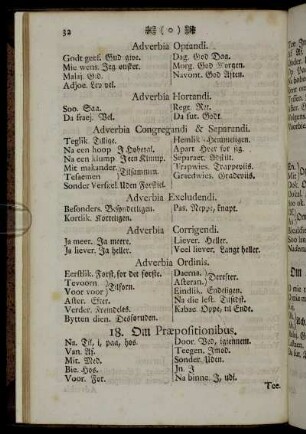 32 ( o )
Adverbia Optandi.
Godt geef. Gud give.
Mie wens. Jeg ønsker.
Adjou. Lev vel.
Dag. God Dag.
Morg. God Morgen.
Navont. God Aften.
Adverbia Hortandi.
Soo. Saa.
Da fraej. Vel.
Da fut. Godt.
Adverbia Congregandi & Separandi.
Na een hoop
Na een klump J een Klump.
Mit makander
Tesaemen
Tilsammen
Sonder Verskeel Uden Forskiel.
Hemlik Hemmeligen.
Apart Heer for sig.
Separaet. Adskilt.
Trapwies. Trappeviis
Graedwies. Gradeviis.
Adverbia Excludendi.
Besonders.
Kortlik. Korteligen.
Pas. Neppe, knapt.
Adverbia Corrigendi.
Ja meer. Ja meere.
Ja liever. Ja heller.
Liever. Heller.
Veel liever. Langt heller.
Adverbia Ordinis.
Eerstlik. Først, for det første.
Tevoorn
Voor voor
Tilforn.
Aster. Efter.
Verder. Fremdeles.
Bytten dien. Desforuden.
Daerna.
Asteran.
Derefter.
Eindlik. Endeligen.
Na die lest. Tilsidst.
Kabae. Oppe, til Ende.
18. Om Præpositionibus.
Na. Til, i, paa, hos.
Van. Af.
Mit. Med.
Bie. Hos.
Voor. For.
Door. Ved, igiennem.
Teegen. Imod.
Sonder. Uden.
Jn. J
Na binne. J, udi.
Toe.